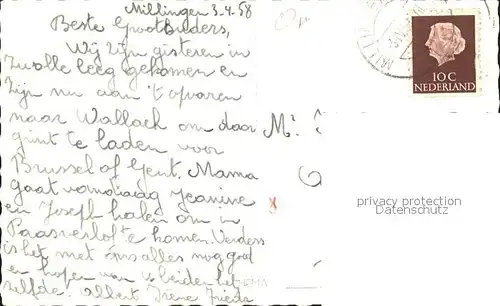 Millingen 3.4.58
Beste Grootouders,
Wij zijn gisteren in
Zwolle leeg gekomen en
zijn nu aan 't opvaren
naar Wallach om daar
grint te laden voor
Brussel of Gent. Mama
gaat vandaag Jeanine
en Joseph halen om in
Paasverlof te komen. Verders
is het met ons alles nog goed
en hopen van u beiden het
zelfde Albert Irene Frieda
M
10 C
NEDERLAND
privacy protection
Datenschutz